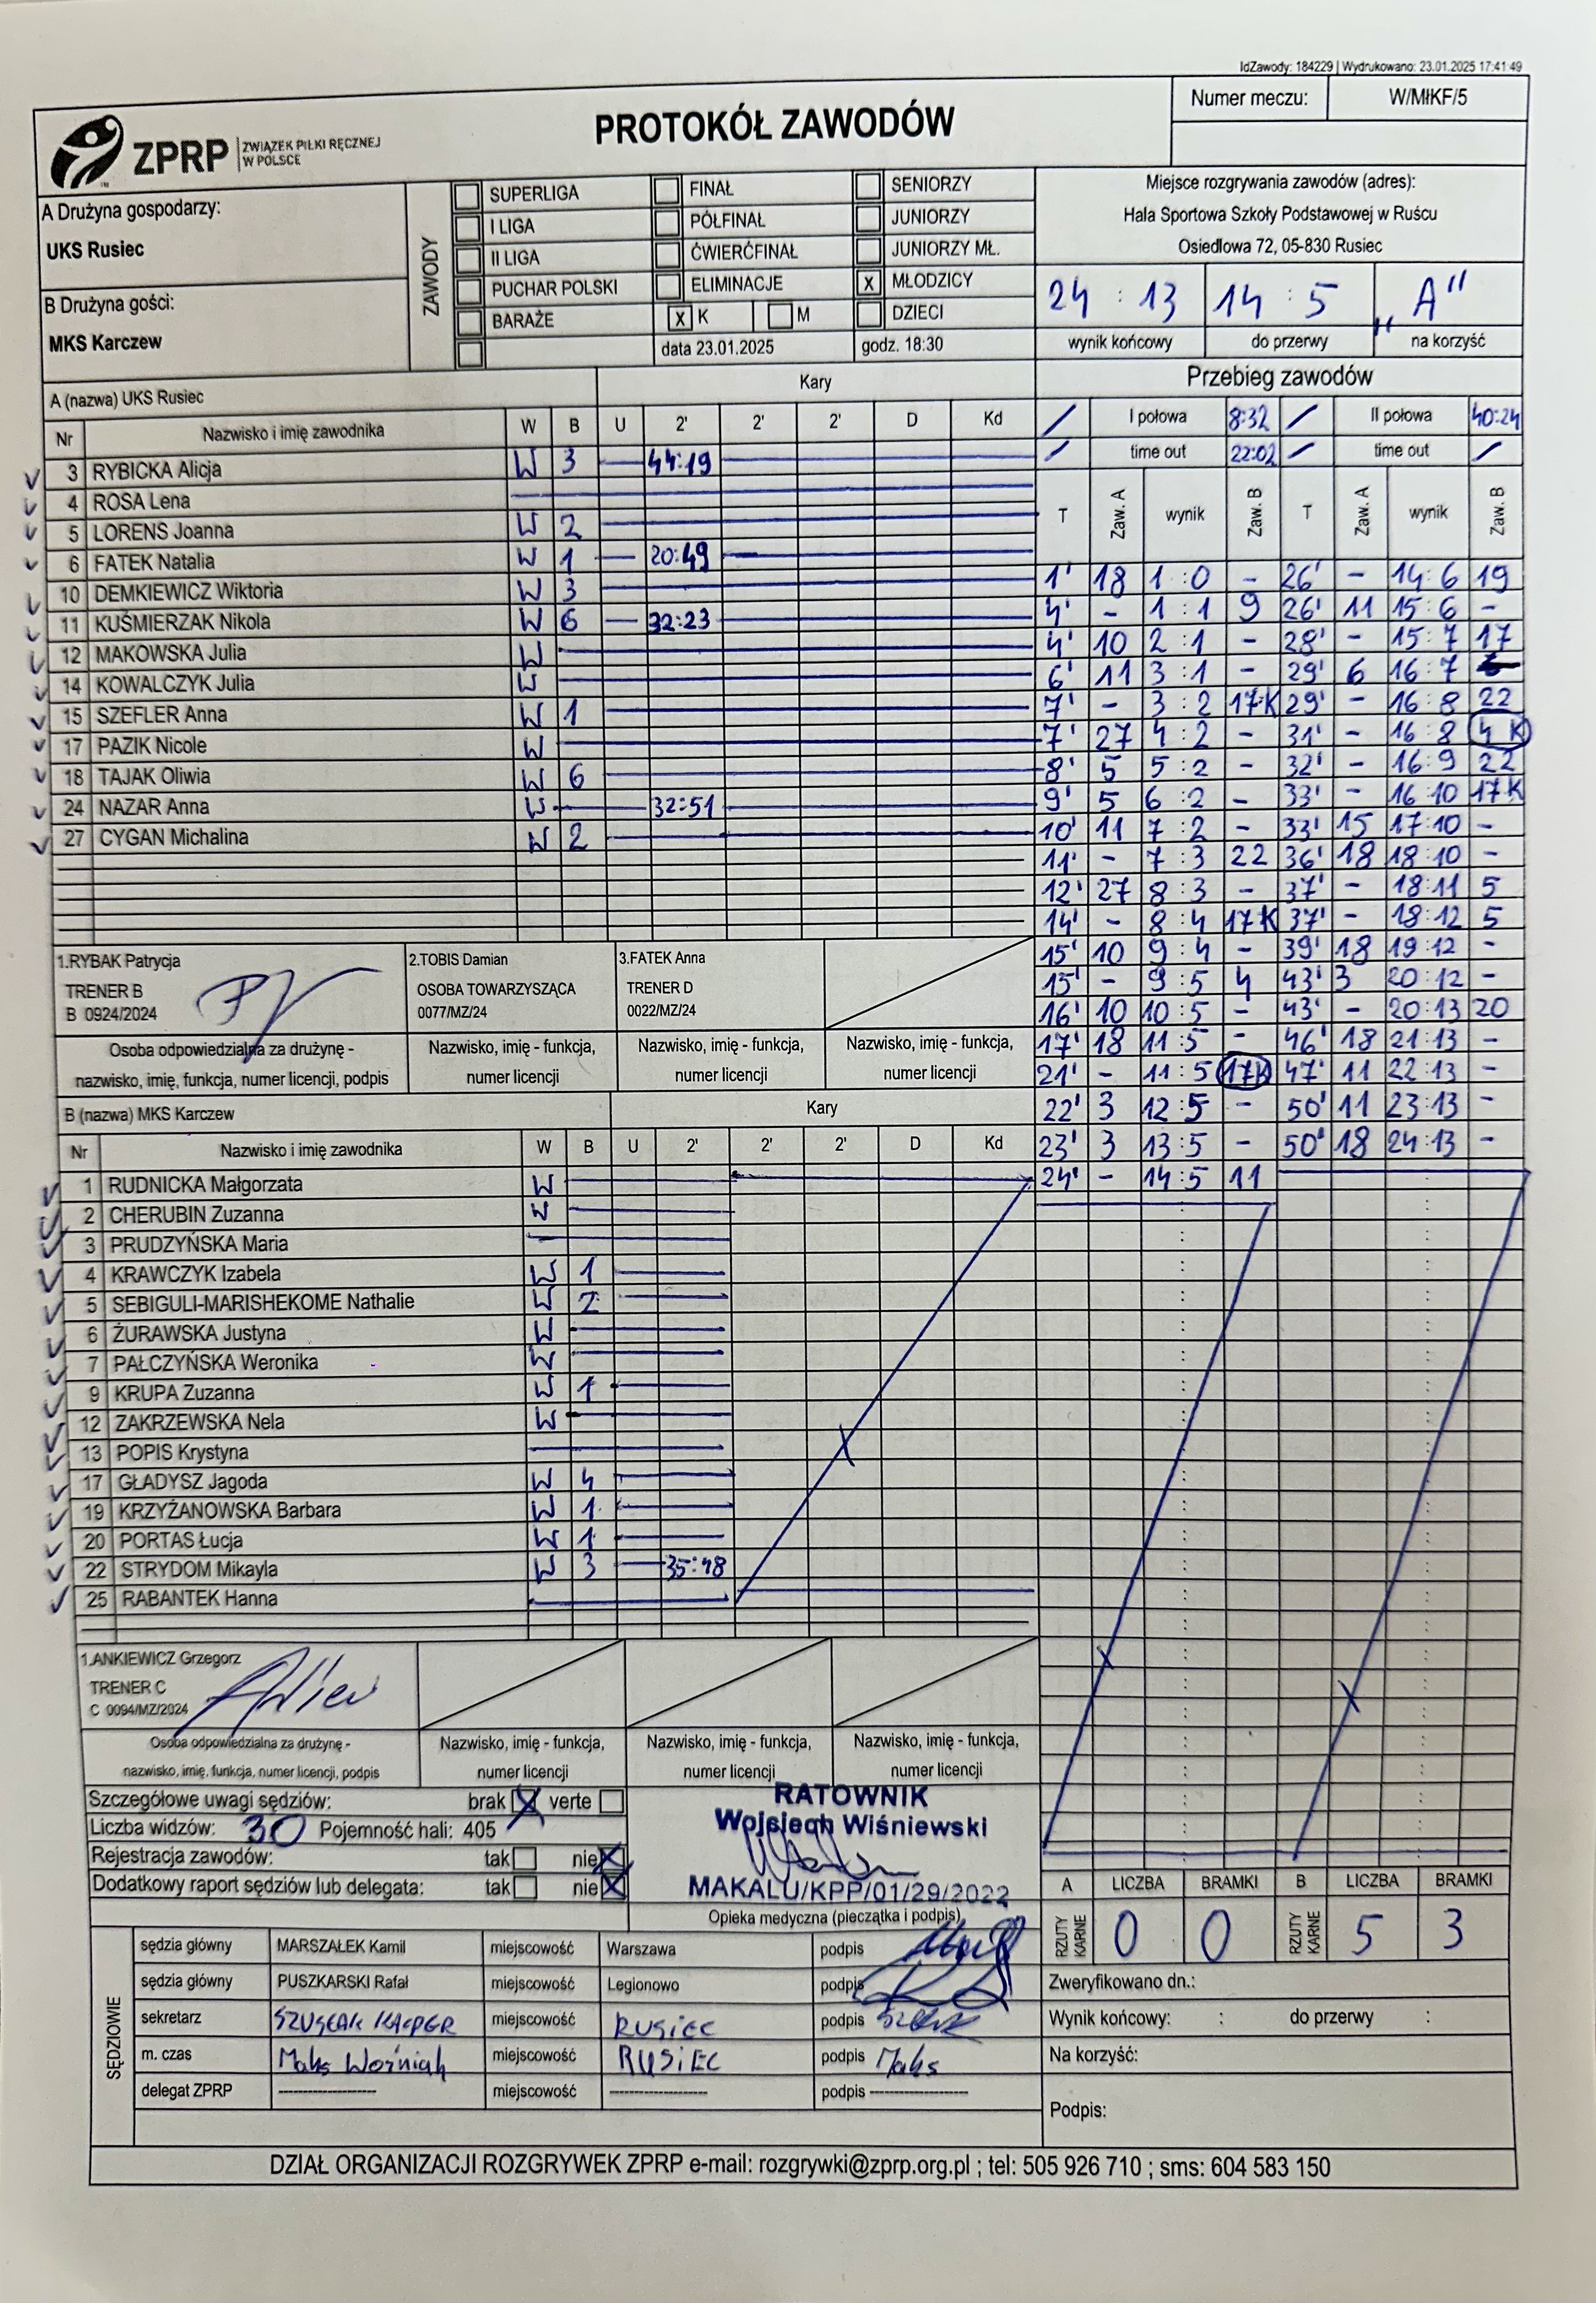 IdZawody: 184229 | Wydrukowano: 23.01.2025 17:41:49
ZPRP ZWIĄZEK PIŁKI RĘCZNEJ W POLSCE
PROTOKÓŁ ZAWODÓW
Numer meczu: W/MłKF/5
A Drużyna gospodarzy:
UKS Rusiec
B Drużyna gości:
MKS Karczew
ZAWODY
SUPERLIGA FINAŁ SENIORZY
I LIGA PÓŁFINAŁ JUNIORZY
II LIGA ĆWIERĆFINAŁ JUNIORZY MŁ.
PUCHAR POLSKI ELIMINACJE X MŁODZICY
BARAŻE X K M DZIECI
data 23.01.2025 godz. 18:30
Miejsce rozgrywania zawodów (adres):
Hala Sportowa Szkoły Podstawowej w Ruścu
Osiedlowa 72, 05-830 Rusiec
24 : 13 14 : 5 „A”
wynik końcowy do przerwy na korzyść
A (nazwa) UKS Rusiec Kary
Nr Nazwisko i imię zawodnika W B U 2' 2' 2' D Kd
3 RYBICKA Alicja W 3 44:19
4 ROSA Lena
5 LORENS Joanna W 2
6 FATEK Natalia W 1 20:49
10 DEMKIEWICZ Wiktoria W 3
11 KUŚMIERZAK Nikola W 6 32:23
12 MAKOWSKA Julia W
14 KOWALCZYK Julia W
15 SZEFLER Anna W 1
17 PAZIK Nicole W
18 TAJAK Oliwia W 6
24 NAZAR Anna W 32:51
27 CYGAN Michalina W 2
1.RYBAK Patrycja
TRENER B
B 0924/2024
2.TOBIS Damian
OSOBA TOWARZYSZĄCA
0077/MZ/24
3.FATEK Anna
TRENER D
0022/MZ/24
Osoba odpowiedzialna za drużynę -
nazwisko, imię, funkcja, numer licencji, podpis
Nazwisko, imię - funkcja,
numer licencji
Nazwisko, imię - funkcja,
numer licencji
Nazwisko, imię - funkcja,
numer licencji
B (nazwa) MKS Karczew Kary
Nr Nazwisko i imię zawodnika W B U 2' 2' 2' D Kd
1 RUDNICKA Małgorzata W
2 CHERUBIN Zuzanna W
3 PRUDZYŃSKA Maria
4 KRAWCZYK Izabela W 1
5 SEBIGULI-MARISHEKOME Nathalie W 2
6 ŻURAWSKA Justyna W
7 PAŁCZYŃSKA Weronika W
9 KRUPA Zuzanna W 1
12 ZAKRZEWSKA Nela W
13 POPIS Krystyna
17 GŁADYSZ Jagoda W 4
19 KRZYŻANOWSKA Barbara W 1
20 PORTAS Łucja W 1
22 STRYDOM Mikayla W 3 35:48
25 RABANTEK Hanna
1.ANKIEWICZ Grzegorz
TRENER C
C 0094/MZ/2024
Osoba odpowiedzialna za drużynę -
nazwisko, imię, funkcja, numer licencji, podpis
Nazwisko, imię - funkcja,
numer licencji
Nazwisko, imię - funkcja,
numer licencji
Nazwisko, imię - funkcja,
numer licencji
Przebieg zawodów
/ I połowa 8:32 / II połowa 40:24
/ time out 22:02 / time out /
T Zaw. A wynik Zaw. B T Zaw. A wynik Zaw. B
1' 18 1:0 - 26' - 14:6 19
4' - 1:1 9 26' 11 15:6 -
4' 10 2:1 - 28' - 15:7 17
6' 11 3:1 - 29' 6 16:7
7' - 3:2 17K 29' - 16:8 22
7' 27 4:2 - 31' - 16:8 4 K
8' 5 5:2 - 32' - 16:9 22
9' 5 6:2 - 33' - 16:10 17K
10' 11 7:2 - 33' 15 17:10 -
11' - 7:3 22 36' 18 18:10 -
12' 27 8:3 - 37' - 18:11 5
14' - 8:4 17K 37' - 18:12 5
15' 10 9:4 - 39' 18 19:12 -
15' - 9:5 4 43' 3 20:12 -
16' 10 10:5 - 43' - 20:13 20
17' 18 11:5 - 46' 18 21:13 -
21' - 11:5 17K 47' 11 22:13 -
22' 3 12:5 - 50' 11 23:13 -
23' 3 13:5 - 50' 18 24:13 -
24' - 14:5 11
Szczegółowe uwagi sędziów: brak X verte
Liczba widzów: 30 Pojemność hali: 405
Rejestracja zawodów: tak nie X
Dodatkowy raport sędziów lub delegata: tak nie X
RATOWNIK
Wojciech Wiśniewski
MAKALU/KPP/01/29/2022
Opieka medyczna (pieczątka i podpis)
A LICZBA BRAMKI B LICZBA BRAMKI
RZUTY KARNE 0 0 RZUTY KARNE 5 3
SĘDZIOWIE
sędzia główny MARSZAŁEK Kamil miejscowość Warszawa podpis
sędzia główny PUSZKARSKI Rafał miejscowość Legionowo podpis
sekretarz KACPER miejscowość RUSIEC podpis
m. czas Maks Woźniak miejscowość RUSIEC podpis Maks
delegat ZPRP ---------- miejscowość ---------- podpis ----------
Zweryfikowano dn.:
Wynik końcowy: : do przerwy :
Na korzyść:
Podpis:
DZIAŁ ORGANIZACJI ROZGRYWEK ZPRP e-mail: rozgrywki@zprp.org.pl ; tel: 505 926 710 ; sms: 604 583 150